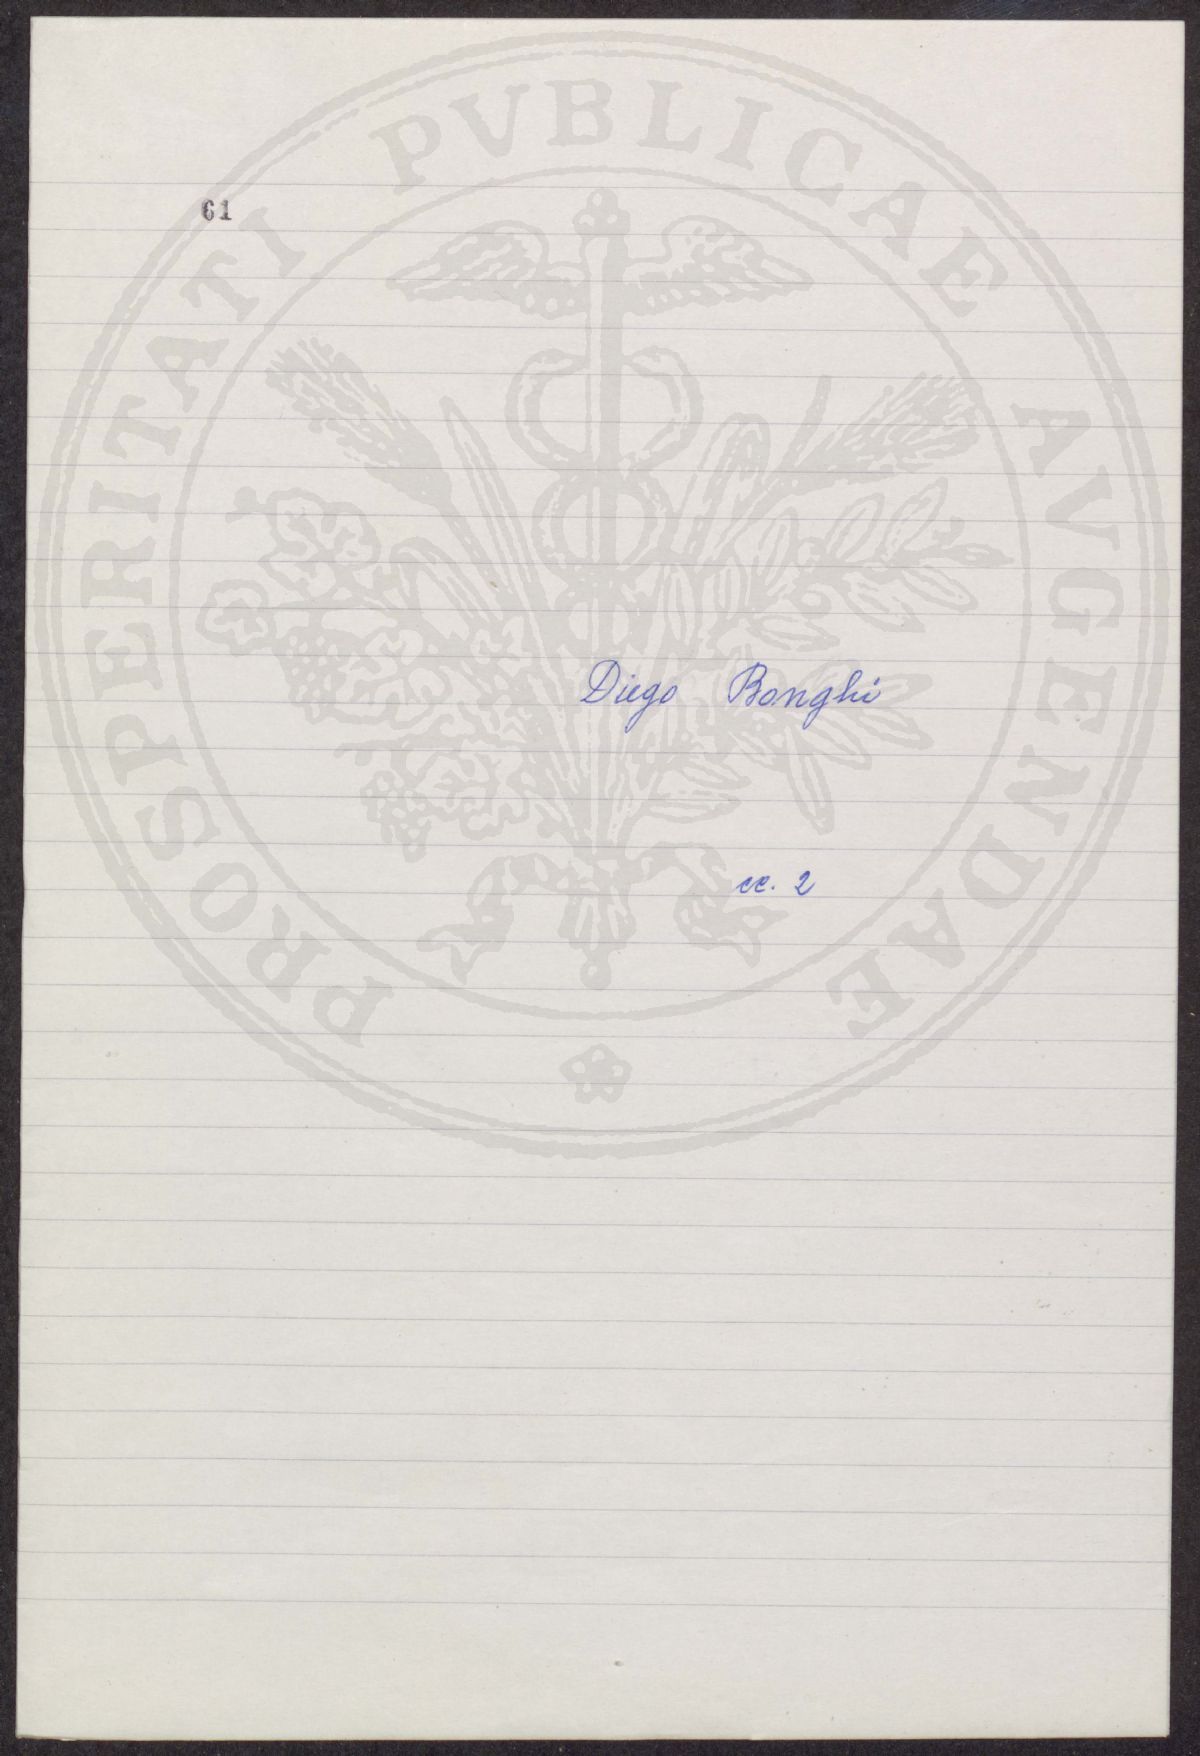 61
PROSPERITATI PVBLICAE AVGENDAE
Diego Bonghi
cc. 2